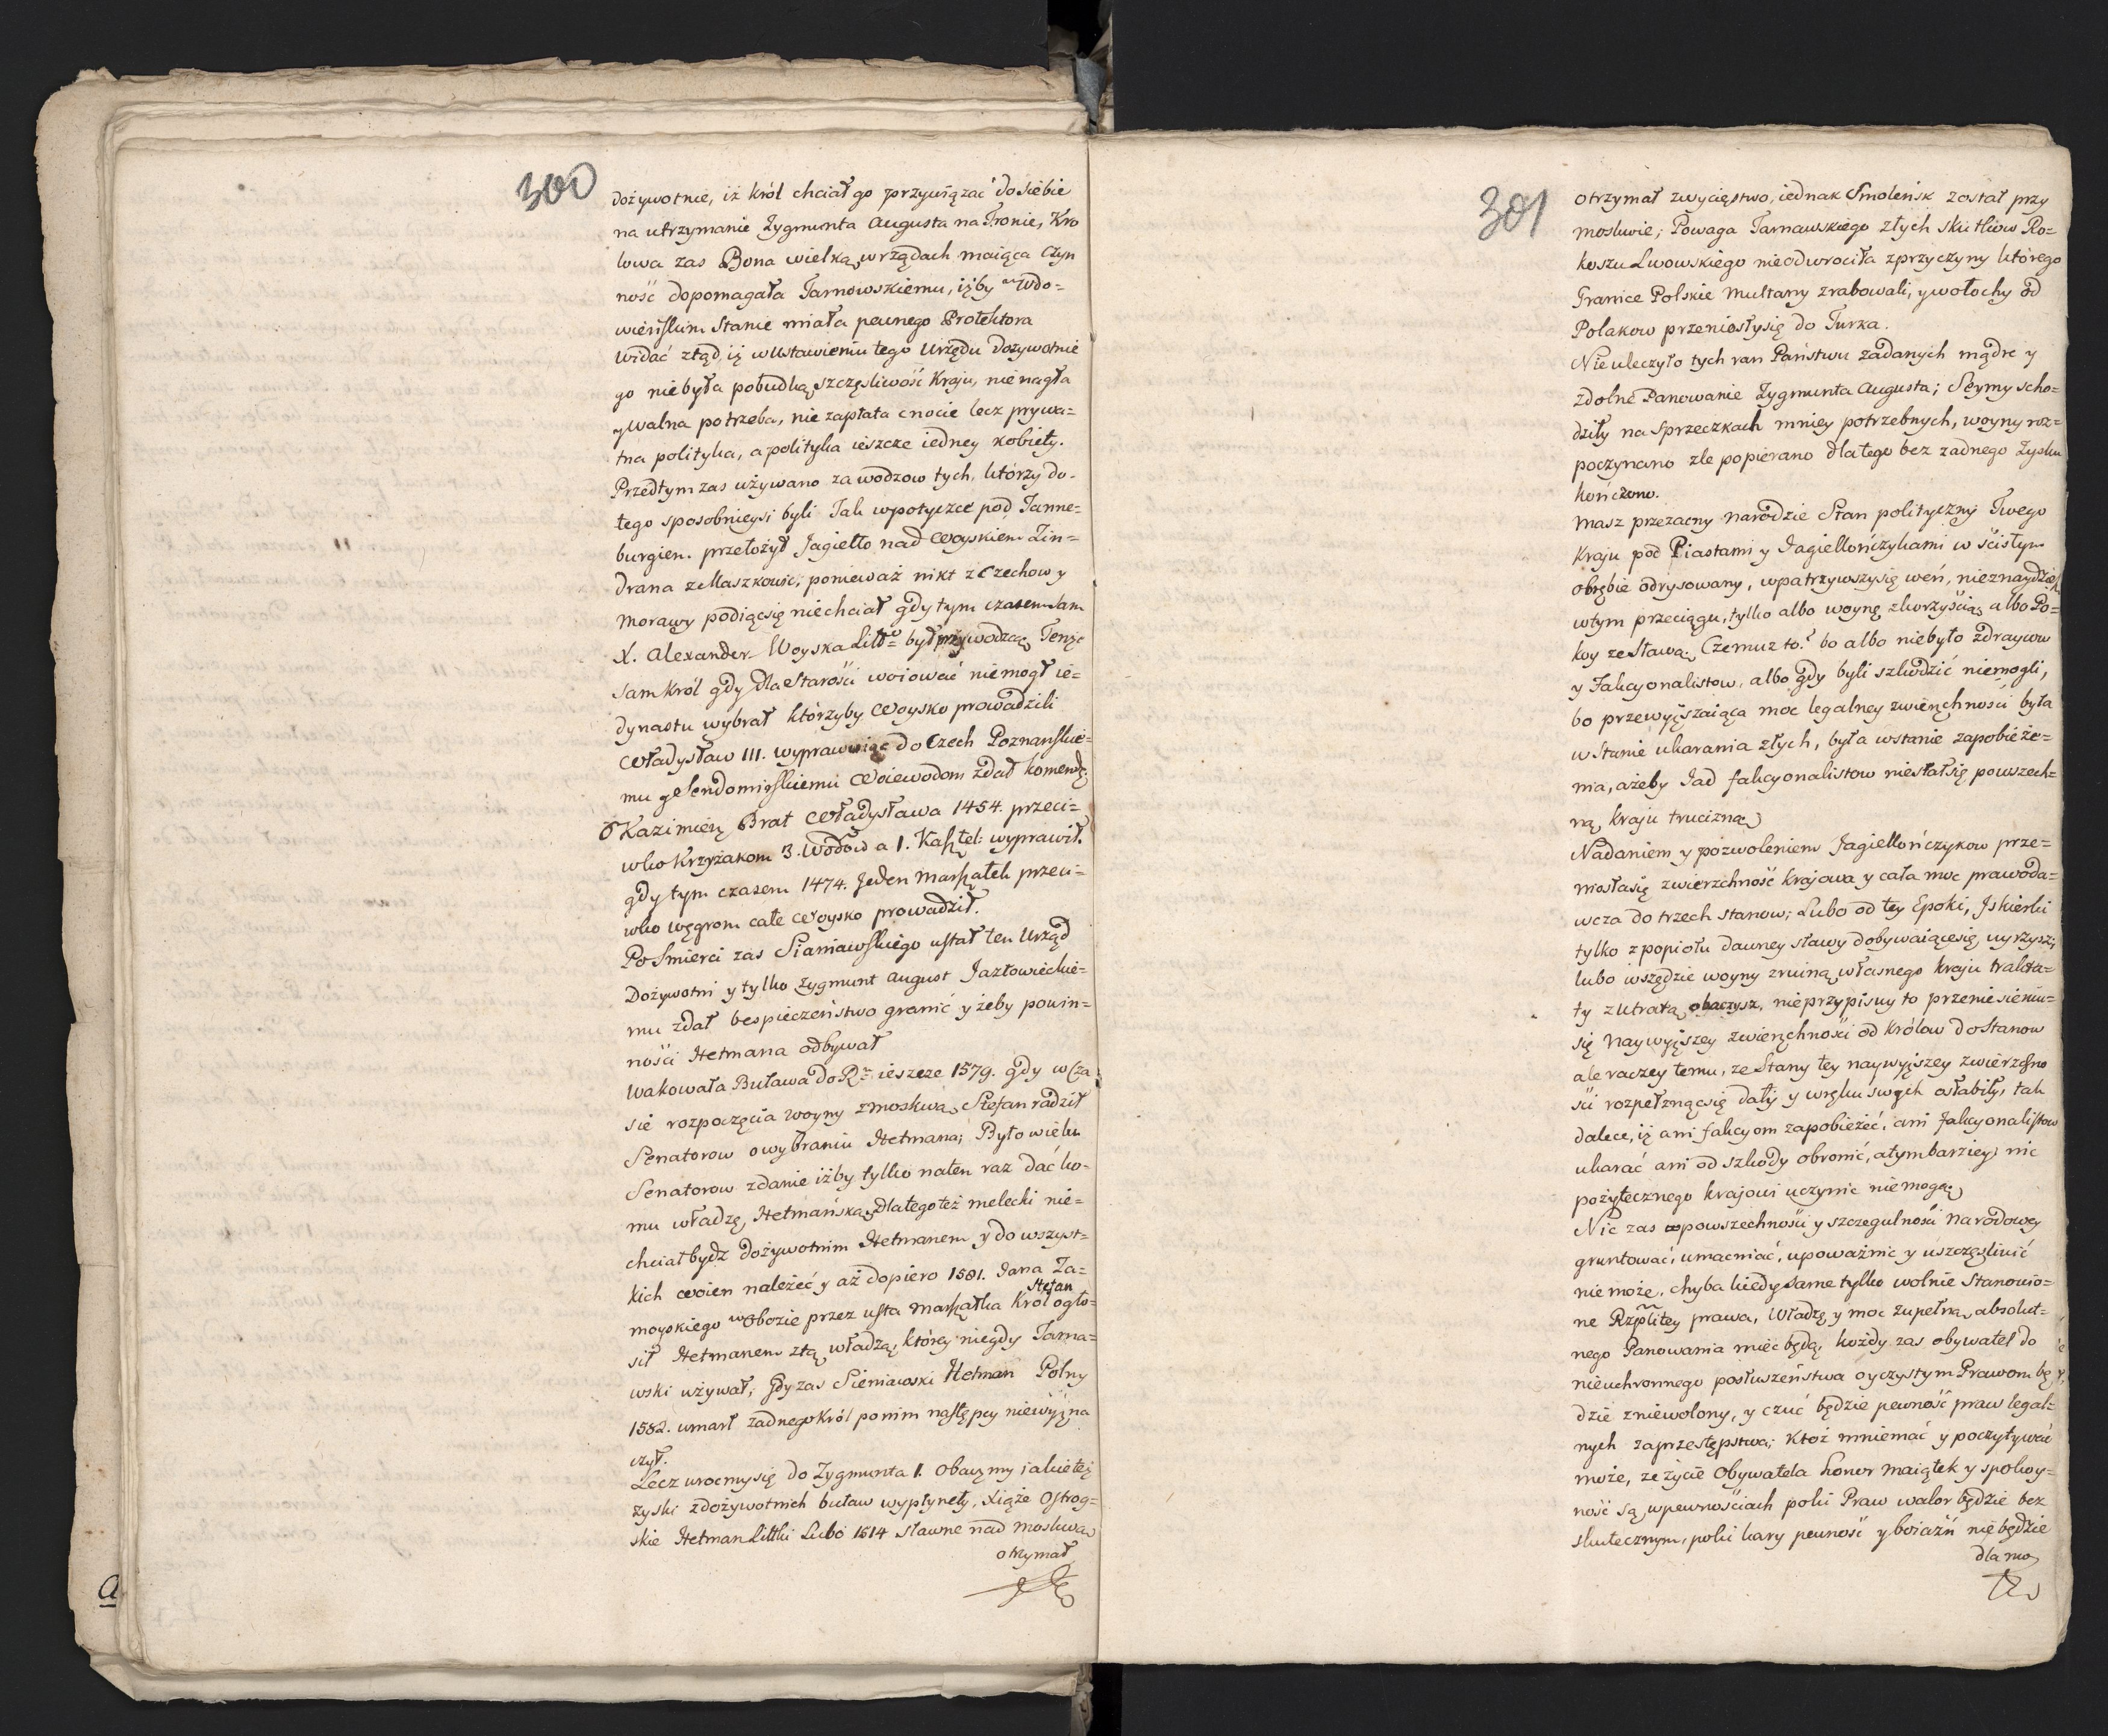 300
dożywotnie, iż król chciał go przywiązać do siebie
na utrzymanie Zygmunta Augusta na Tronie, Kro
lowa zas Bona wielką w rządach maiąca czyn
ność dopomagała Tarnowskiemu, iżby w Wdo=
wieńskim Stanie miała pewnego Protektora
widać ztąd iż w ustawieniu tego Urzędu dożywotnie
go nie była pobudką szczęsliwość Kraju, nie nagła
y walna potrzeba, nie zapłata cnocie lecz prywa=
tna polityka, a polityka ieszcze iedney kobiety.
Przedtym zas używano za wodzow tych, którzy do
tego sposobnieysi byli Jak w potyczce pod Tanne=
burgiem. przełożył Jagiełło nad Woyskiem Zin=
drana z Maszkowic, ponieważ nikt z Czechow y
Morawy podiącsię niechciał gdy tym czasem sam
X. Alexander Woyska Littº był przywodzcą Tenże
sam król gdy dla Starości woiować niemogł ie=
dynastu wybrał którzyby Woysko prowadzili
Władysław III. wyprawuiąc do Czech Poznańskie=
mu y Sendomirskiemu Woiewodom zdał komendę.
Kazimierz Brat Władysława 1454. przeci=
wko Krzyżakom 3. Wodow a 1. Kasztel: wyprawił.
gdy tym czasem 1474. Jeden Marszałek przeci=
wko węgrom całe Woysko prowadził.
Po Smierci zas Sianiawskiego ustał ten Urząd
Dożywotni y tylko Zygmunt August Jazłowieckie=
mu zdał bespieczeństwo granić y żeby powin=
ności Hetmana odbywał
Wakowała Buława do R ieszcze 1579. gdy w Cza
sie rozpoczęcia woyny z moskwą Stefan radził
Senatorow o wybraniu Hetmana; Było wielu
Senatorow zdanie iżby tylko naten raz dać ko-
mu władzę Hetmańską dlatego też melecki nie=
chciał bydz dożywotnim Hetmanem y do wszyst=
kich woien należeć y aż dopiero 1581. Jana Za=
moyskiego w Obozie przez usta marszałka Król Stefan ogło=
sił Hetmanem ztą władzą, którey niegdy Tarna=
wski używał; gdy zas Sieniawski Hetman Polny
1582. umarł zadnego Król po nim nastepcy niewyzna
czył.
Lecz wrocmysię do Zygmunta I. obaczmy iakieteż
zyski z dożywotnich buław wypłyneły, Xiąże Ostrog=
skie Hetman Littki Lubo 1514 sławne nad Moskwą
otrzymał
301
otrzymał zwycięstwo, iednak Smoleńsk został przy
moskwie; Powaga Tarnawskiego złych skutkow Ro=
koszu Lwowskiego nieodwrociła z przyczyny którego
Granice Polskie Multany zrabowali, y wołochy od
Polakow przeniosłysię do Turka.
Nieuleczyło tych ran Państwu zadanych mądre y
zdolne Panowanie Zygmunta Augusta; Seymy scho=
dziły na Sprzeczkach mniey potrzebnych, woyny roz=
poczynano zle popierano dlatego bez zadnego Zysku
kończono.
Masz przezacny narodzie Stan polityczny Twego
Kraju pod Piastami y Jagiellończykami w ścisłym
obrębie odrysowany, wpatrzywszysię weń, nieznaydziesz
w tym przeciągu, tylko albo woynę z korzyścią albo Po=
koy ze Sławą. Czemuz to? bo albo niebyło zdraycow
y Fakcyonalistow, albo gdy byli szkodzić niemogli,
bo przewyższaiąca moc legalney zwierzchności była
w Stanie ukarania złych, była wstanie zapobieże=
nia, ażeby Jad fakcyonalistow niestałsię powszech=
ną kraju trucizną
Nadaniem y pozwoleniem Jagiellończykow prze=
niosłasię zwierzchność krajowa y cała moc prawoda=
wcza do trzech stanow; Lubo od tey Epoki, Jskierki
tylko z popiołu dawney sławy dobywaiącesię uyrzysz;
lubo wszędzie woyny z ruiną własnego kraju trakta=
ty z utratą obaczysz, nieprzypisuy to przeniesieniu=
się naywyższey zwierzchności od królow do Stanow
ale raczey temu, ze Stany tey naywyższey zwierzchno
ści rozpełznącsię dały y w ręku swych osłabiły, tak
dalece, iż ani fakcyom zapobieżeć, ani fakcyonalistow
ukarać ani od szkody obronić, a tym bardziey nic
pożytecznego krajowi uczynić niemogą
Nic zas powszechności y szczegulności Narodowey
gruntować, umacniać, upoważnić y uszczęśliwić
nie może, chyba kiedy same tylko wolnie Stanowio=
ne Rzplitey prawa, Władzę y moc zupełną absolut=
nego Panowania mieć będą, każdy zas obywatel do
nieuchronnego posłuszeństwa oyczystym Prawom bę
dzie zniewolony, y czuć będzie pewność praw legal=
nych za przestępstwa; Ktoż mniemać y poczytywać
może, ze życie Obywatela honor maiątek y spokoy=
ność są w pewnościach poki Praw walor będzie bez
skutecznym, poki kary pewność y boiaźń nie będzie
dla mo